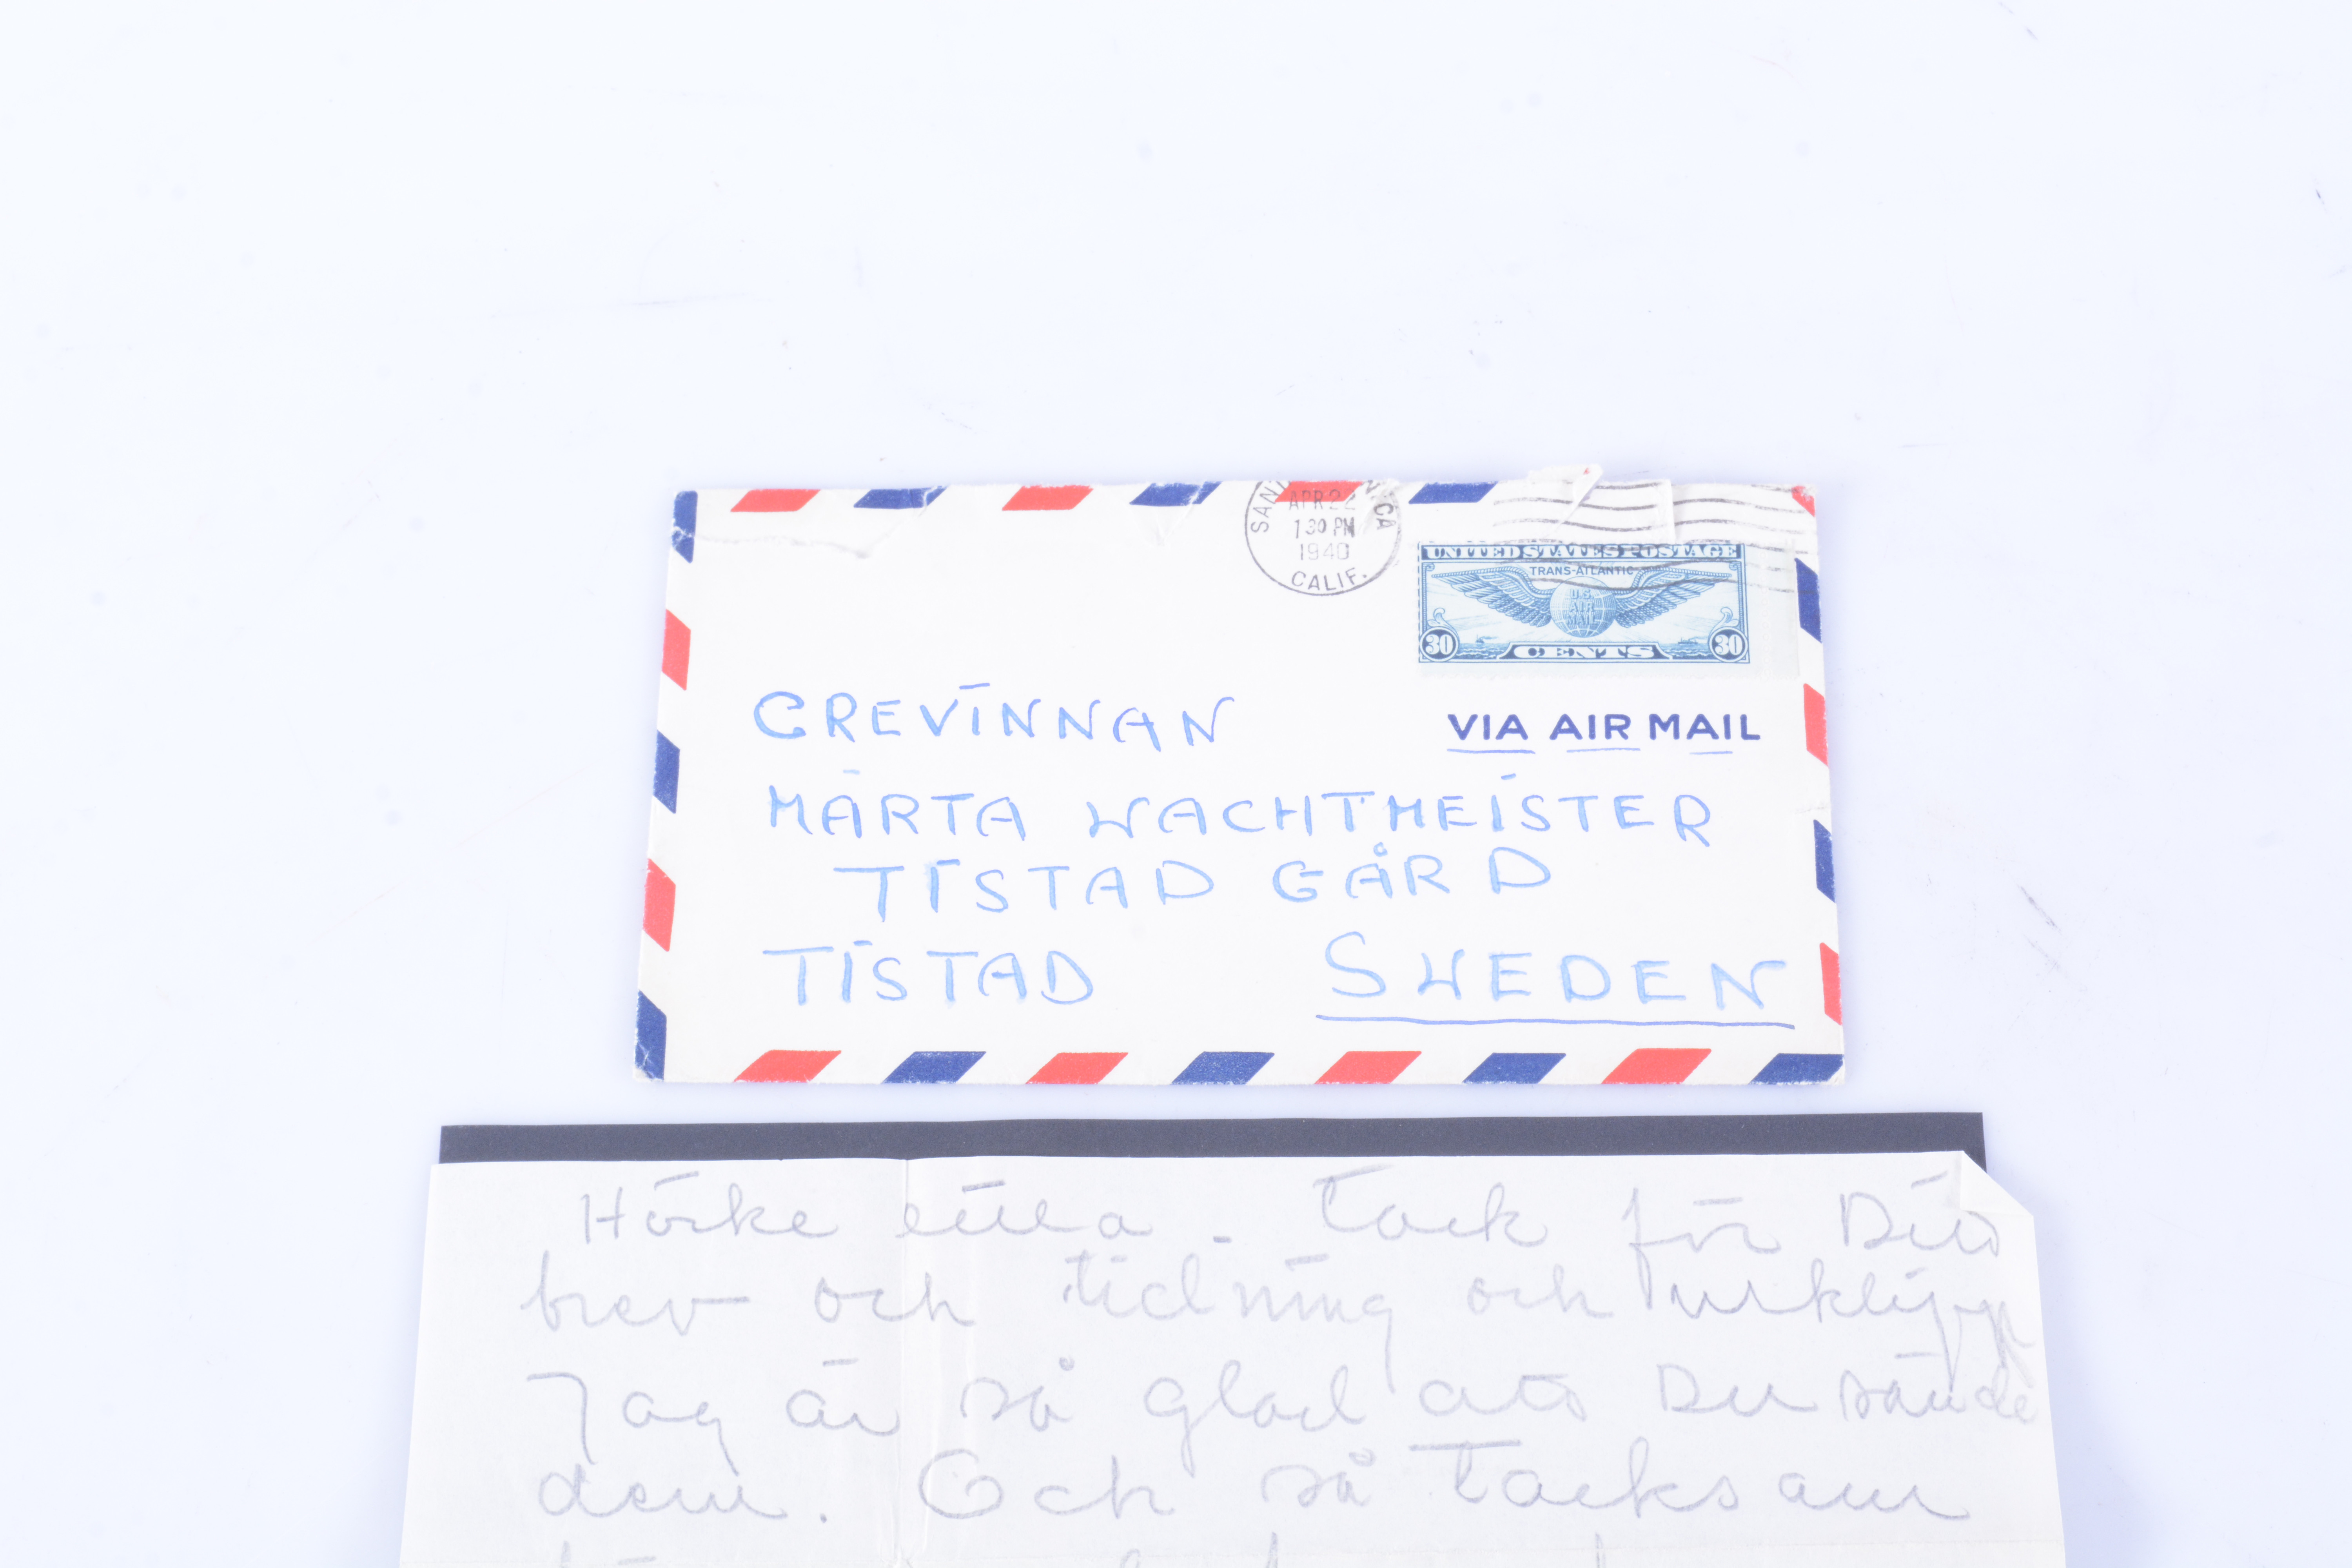 SANTA MONICA
APR 22
1 30 PM
1940
CALIF.
UNITED STATES POSTAGE
TRANS-ATLANTIC
U.S.
AIR
MAIL
30 CENTS 30
VIA AIR MAIL
GREVINNAN
MÄRTA WACHTMEISTER
TISTAD GÅRD
TISTAD SWEDEN
lilla - Tack för Ditt
brev och tidning och urklipp
Jag är så glad att Du sände
dem. Och så tacksam